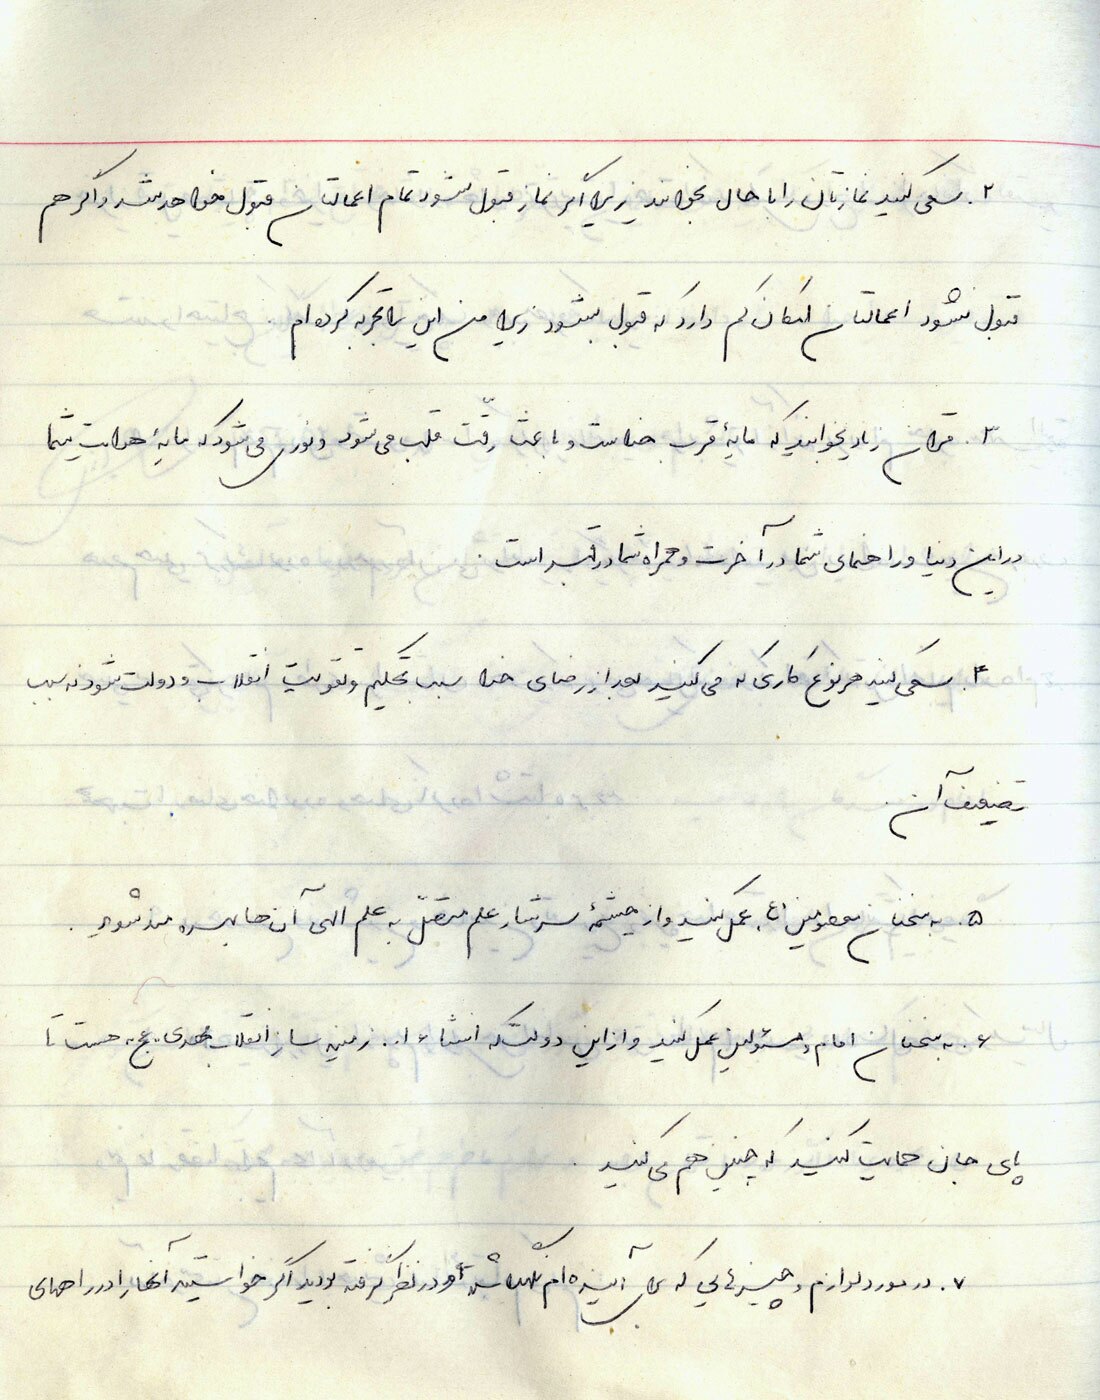 ۲. سعی کنید نمازتان را با حال بخوانید زیرا اگر نماز قبول شود تمام اعمالتان قبول خواهد شد و اگر هم
قبول نشود اعمالتان امکان کم دارد که قبول بشود زیرا من این را تجربه کرده‌ام .
۳. قرآن زیاد بخوانید که مایهٔ قرب خداست و باعث رقّت قلب می‌شود و نوری می‌شود که مایهٔ هدایت شما
در این دنیا و راهنمای شما در آخرت و همراه شما در قبر است .
۴. سعی کنید هر نوع کاری که می‌کنید بعد از رضای خدا سبب تحکیم و تقویت انقلاب و دولت شود نه سبب
تضعیف آن .
۵. به سخنان معصومین (ع) عمل کنید و از چشمهٔ سرشار علم متصّل به علم الهی آن‌ها بهره‌مند شوید .
۶. به سخنان امام و مسئولین عمل کنید و از این دولت که انشاء ا... زمینه ساز انقلاب مهدی -عج- هست تا
پای جان حمایت کنید که چنین هم می‌کنید .
۷. در مورد لوازم و چیزهایی که برای آینده‌ام در نظر گرفته بودید اگر خواستید آنها را در راههای